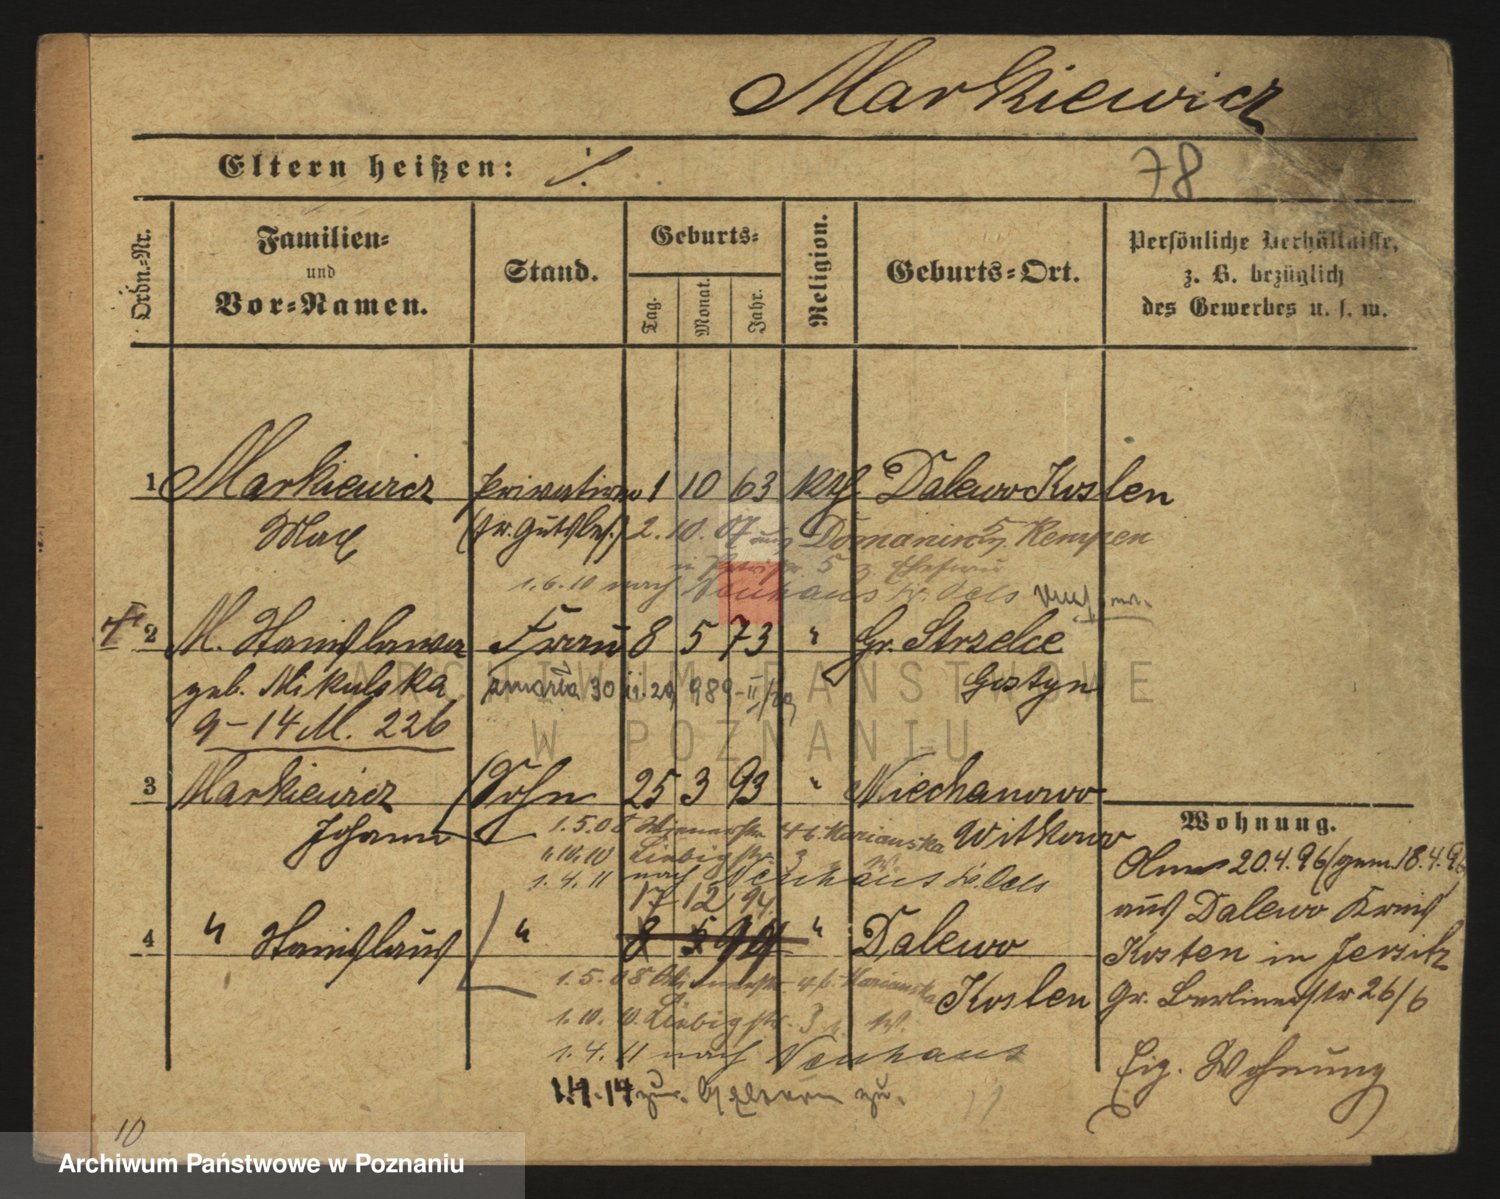 Markiewicz
Eltern heißen: ./.
78
Ordn.-Nr.
Familien-
und
Vor-Namen.
Stand.
Geburts-
Tag. Monat. Jahr.
Religion.
Geburts-Ort.
Persönliche Verhältnisse,
z. B. bezüglich
des Gewerbes u. s. w.
1 Markiewicz 1 10 63 kth Dalewo Kosten
Max (fr. Gutsbes.) 2. 10. 07 aus Domanin Kempen
1.6.10 nach Neuhaus Kr. Oels
2 M. Stanislawa Frau 8 5 73 " Gr. Strzelce
geb. Mikulska Gostyn
zmarła 30
9-14 M. 226
3 Markiewicz Sohn 25 3 93 " Niechanowo
Johann Witkowo
1.5.08 4 b. Marianska
1.10.10 Liebigstr. 3
1.4.11 nach Neuhaus Kr. Oels
17 12 94
4 " Stanislaus " 8 5 99 " Dalewo
Kosten
1.5.08 4 b. Marianska
1.10.10. Liebigstr. 3
1.4.11 nach Neuhaus
1.4.14 zu. Eltern zu.
Wohnung.
20.4.96/gem. 18.4.96
aus Dalewo Kreis
Kosten in Jersitz
Gr. Berlinerstr 26/6
Eig. Wohnung
10
ARCHIWUM PAŃSTWOWE
W POZNANIU
Archiwum Państwowe w Poznaniu